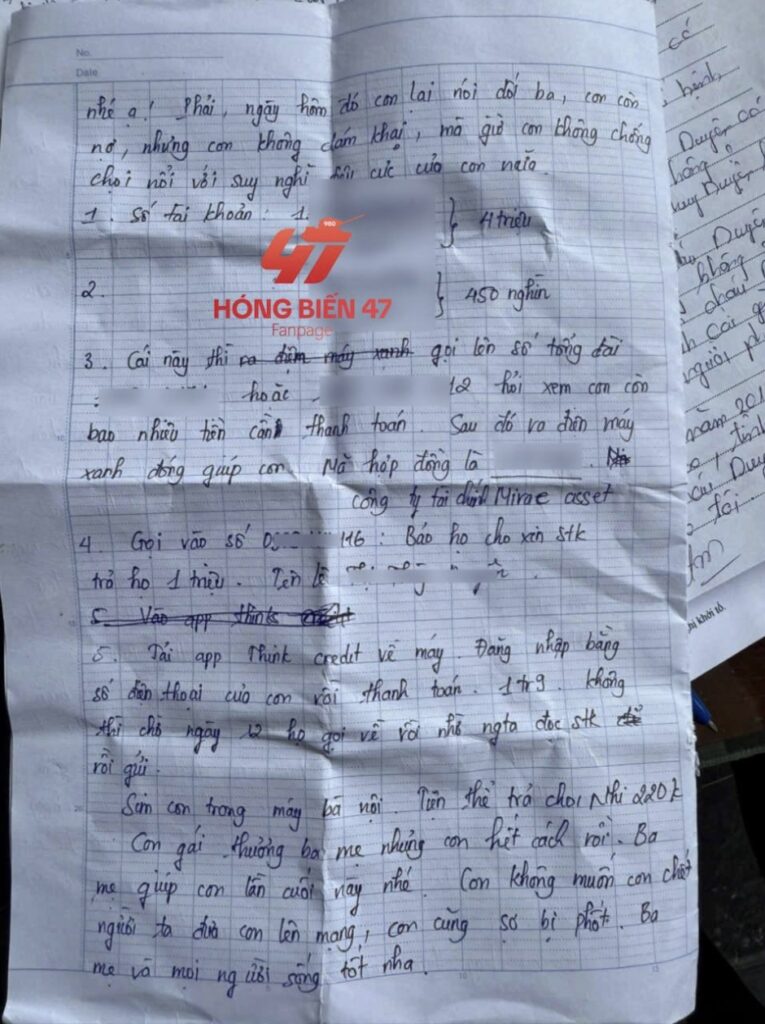 No.
Date
nhé ạ! Phải, ngày hôm đó con lại nói dối ba, con còn
nợ, nhưng con không dám khai, mà giờ con không chống
chọi nổi với suy nghĩ cực của con nữa.
1. Số tài khoản: 1. } 4 triệu
980
47
HÓNG BIẾN 47
Fanpage
2. } 450 nghìn
3. Cái này thì ra điện máy xanh gọi lên số tổng đài
: hoặc 12 hỏi xem con còn
bao nhiêu tiền cần thanh toán. Sau đó ra điện máy
xanh đóng giúp con. Mã hợp đồng là
công ty tài chính Mirae asset
4. Gọi vào số 0 116: Bảo họ cho xin stk
trả họ 1 triệu. Tên là
5. Vào app think
5. Tải app Think credit về máy. Đăng nhập bằng
số điện thoại của con rồi thanh toán. 1tr9. Không
thì chờ ngày 12 họ gọi về rồi nhờ ngta đọc stk để
rồi gửi.
Sim con trong máy bà nội. Tiện thể trả cho Nhi 220k
Con gái thương ba mẹ nhưng con hết cách rồi. Ba
mẹ giúp con lần cuối này nhé. Con không muốn con chết
người ta đưa con lên mạng, con cũng sợ bị phốt. Ba
mẹ và mọi người sống tốt nha.
bệnh,
Duyên có
không
Duyên
không
cháu
năm 201
tình
Duy
tôi
khởi tố.